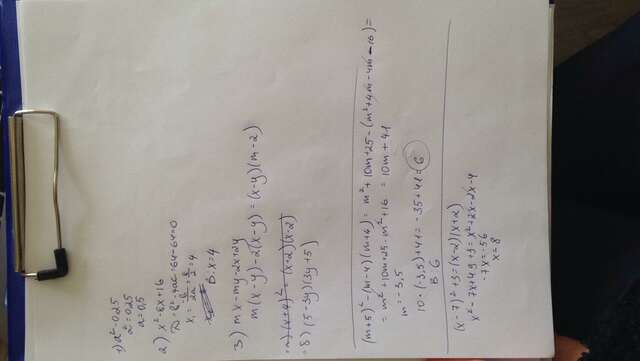 1) a²-0.25
a²=0.25
a=0,5
2) x²-8x+16
D=b²-4ac=64-64=0
x₁=-b/2a=8/2=4
B: x=4
3) mx-my-2x+2y
m(x-y)-2(x-y)=(x-y)(m-2)
8) (5-3y)(3y+5)
(m+5)²-(m-4)(m+4)=m²+10m+25-(m²+4m-4m-16)=
=m²+10m+25-m²+16=10m+41
m=-3,5
10·(-3,5)+41=-35+41=6
B: 6
(x-7)²+3=(x-2)(x+2)
x²-7x+49+3=x²+2x-2x-4
-7x=-56
x=8